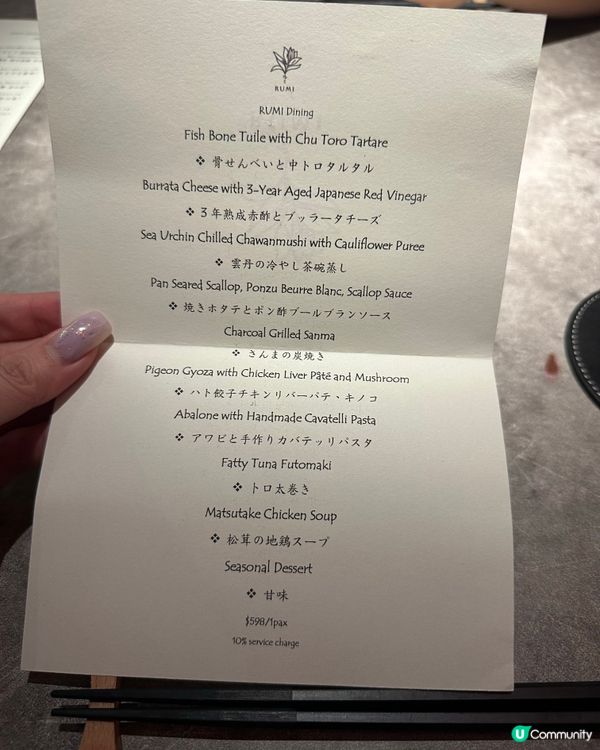 RUMI
RUMI Dining
Fish Bone Tuile with Chu Toro Tartare
❖ 骨せんべいと中トロタルタル
Burrata Cheese with 3-Year Aged Japanese Red Vinegar
❖ 3年熟成赤酢とブッラータチーズ
Sea Urchin Chilled Chawanmushi with Cauliflower Puree
❖ 雲丹の冷やし茶碗蒸し
Pan Seared Scallop, Ponzu Beurre Blanc, Scallop Sauce
❖ 焼きホタテとポン酢ブールブランソース
Charcoal Grilled Sanma
❖ さんまの炭焼き
Pigeon Gyoza with Chicken Liver Pâté and Mushroom
❖ ハト餃子チキンリバーパテ・キノコ
Abalone with Handmade Cavatelli Pasta
❖ アワビと手作りカバテッリパスタ
Fatty Tuna Futomaki
❖ トロ太巻き
Matsutake Chicken Soup
❖ 松茸の地鶏スープ
Seasonal Dessert
❖ 甘味
$598/1pax
10% service charge
U Community